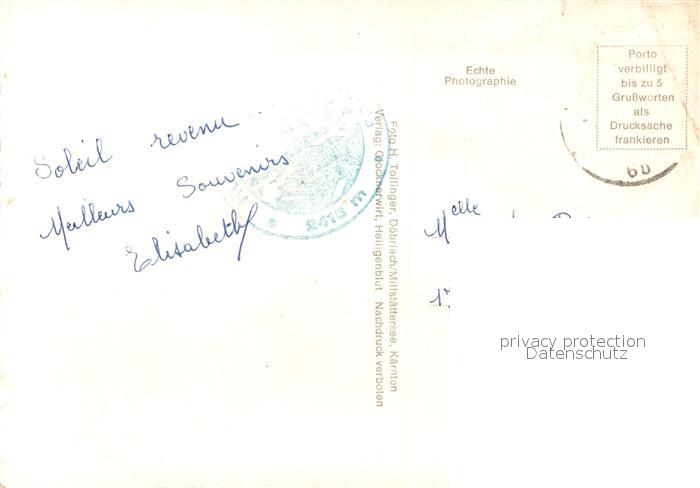 Soleil revenu
Meilleurs Souvenirs
Elisabeth
2418 m
Foto H. Tollinger, Döbriach/Millstättersee, Kärnten
Verlag: Glocknerwirt, Heiligenblut Nachdruck verboten
Echte
Photographie
Porto
verbilligt
bis zu 5
Grußworten
als
Drucksache
frankieren
60
Melle
privacy protection
Datenschutz